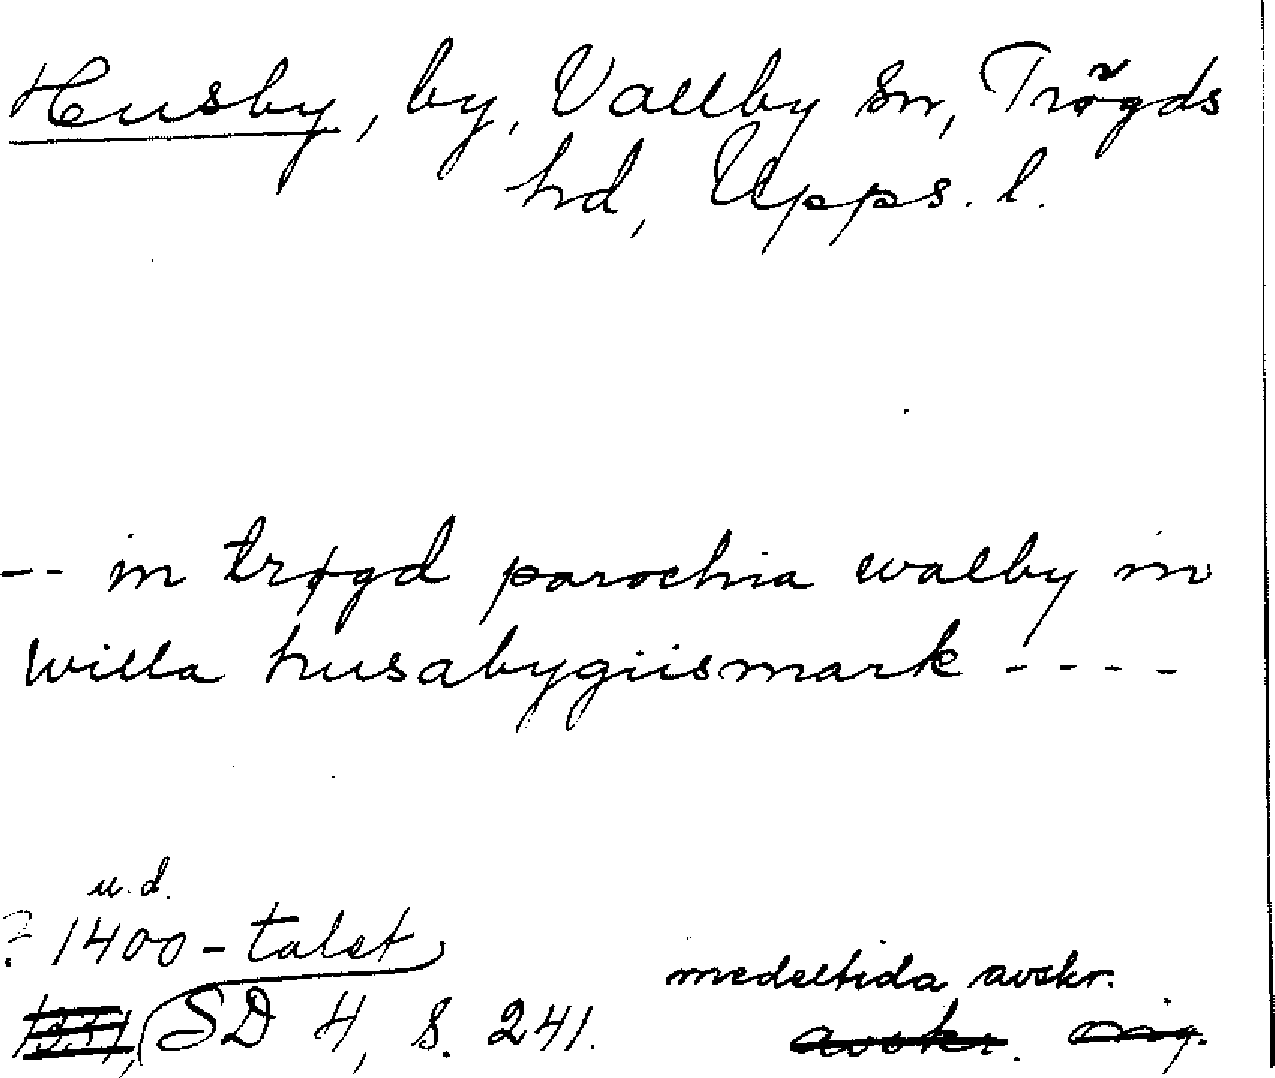 Husby, by, Vallby sn, Trögds
hd, Upps. l.
-- in trøgd parochia walby in
willa husabygiismark ----
u.d.
? 1400-talet
1331, SD 4, s. 241.
medeltida avskr.
avskr. orig.